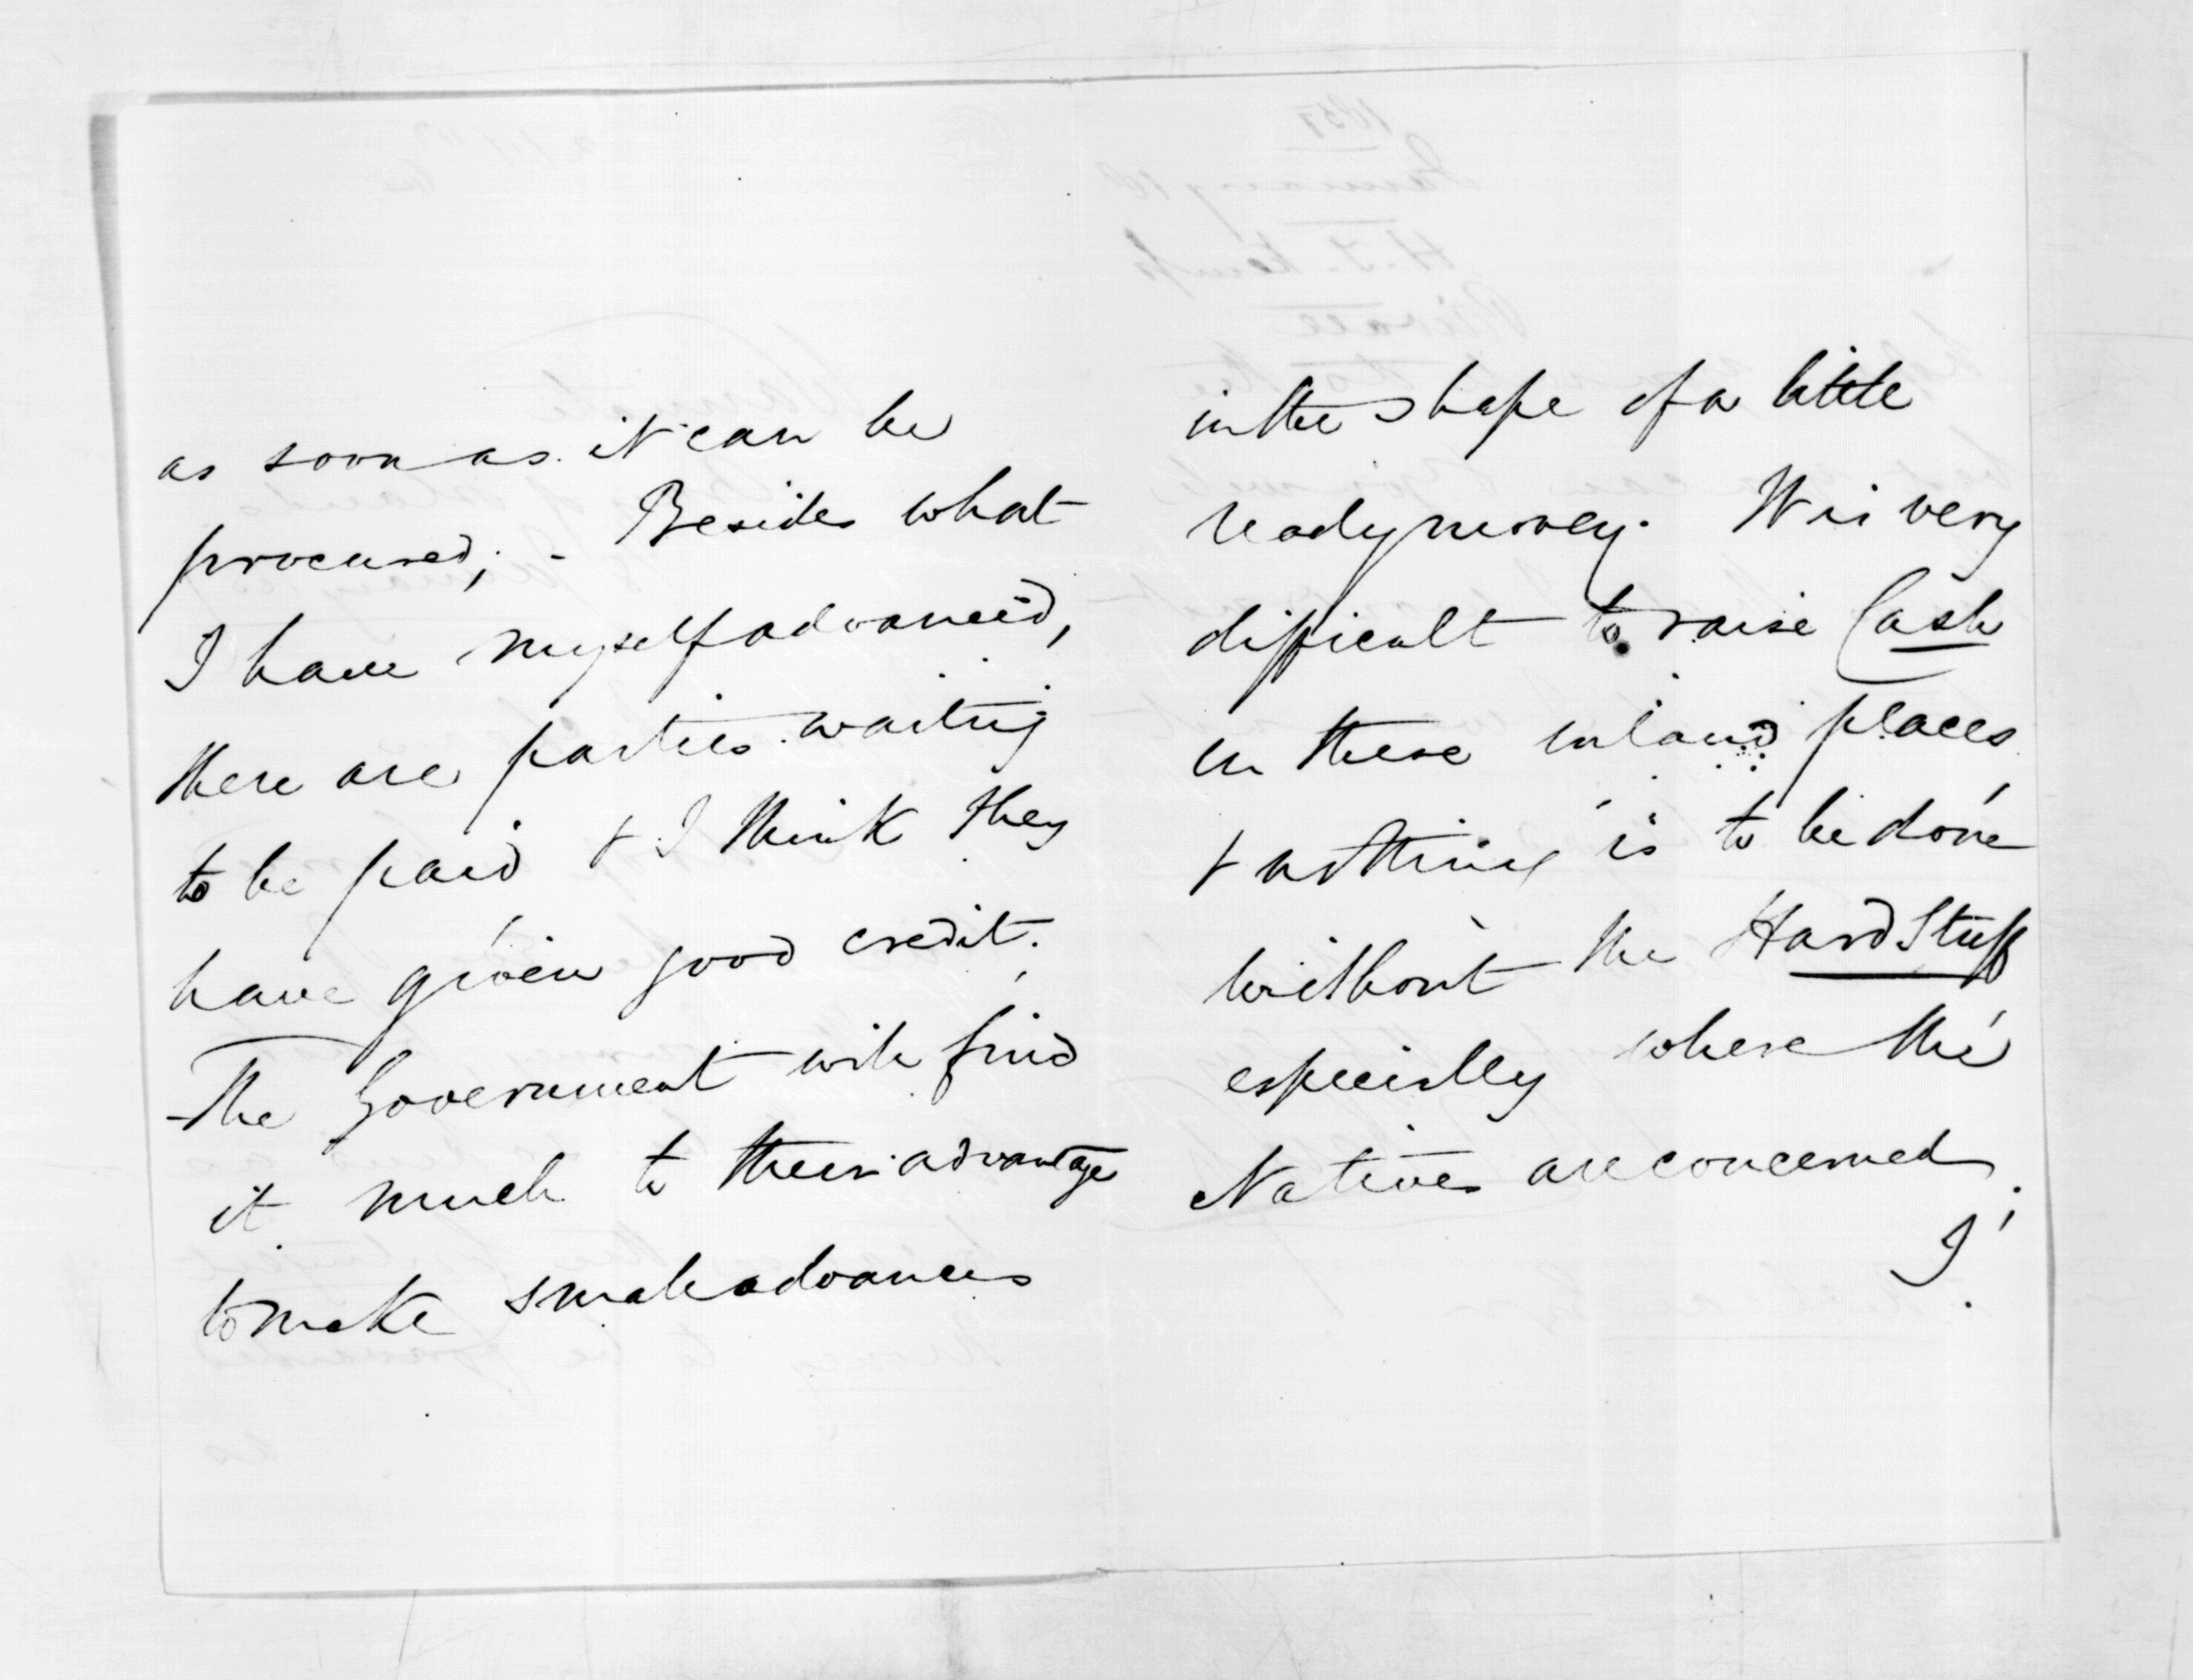 as soon as it can be
procured; - Besides what
I have myself advanced,
there are parties waiting
to be paid & I think they
have given good credit.
The Government will find
it much to their advantage
to make small advances
in the shape of a little
ready money. It is very
difficult to raise Cash
in these inland places
& nothing is to be done
without the Hard Stuff
especially where the
Natives are concerned;
I